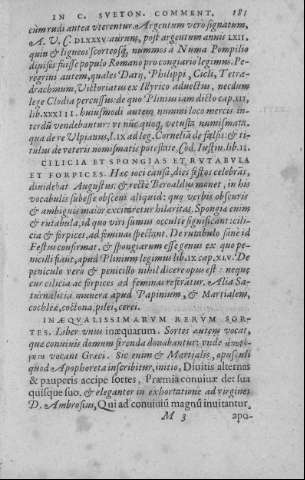 IN C. SVETON. COMMENT. 181
cum rudi antea vterentur. Argentum vero signatum,
A. V. C. DLXXXV. aurum, post argentum annis LXII.
quin & ligneos scorteosq́; nummos à Numa Pompilio
fuisse populo Romano pro congiario legimus. Pe-
regrini autem, quales Darij, Philippi, Tetra-
drachmum, Victoriatus ex Illyrico aduectus, necdum
lege Clodia percussus: de quo Plinius iam dicto cap. III,
lib. XXXIII. huiusmodi autem nummi loco mercis in-
terdũ vendebantur: vt nũc quoq́; vetusta numismata.
qua de re Vlpianus, l. IX ad leg. Corneliã de falsis: & ti-
tulus de veteris nomismatis potestate. Cod. Iustin. lib.
CILICIA ET SPONGIAS ET RVTABVLA
ET FORPICES. Hæc ioci causa, dies festos celebras,
diuidebat Augustus: & recte Beroaldus monet, in his
vocabulis subesse obscœni aliquid: quæ verbis obscuris
& ambiguis maior excitaretur hilaritas. Spongia enim
& rutabula, id quo viri sumus occulte significant: cili-
cia & forpices, ad fœminas spectant. De rutabulo sane id
Festus confirmat. & spongiarum esse genus ex quo pe-
nicilli fiant, apud Plinium legimus lib. IX cap. XLV. De
peniculo vero & penicillo nihil dicere opus est: neque
cur cilicia ac forpices ad fœminas referatur. Alia Sa-
turnalitia munera apud Papinium, & Martialem,
cochleæ, cottona, pilei, cerei.
INÆQVALISSIMARVM RERVM SOR-
TES. Liber vnus inæquarum. Sortes autem vocat,
quæ conuiuis demum ferenda donabantur, vnde
vocant Græci. Sic enim & Martialis, opusculi
quod Apophoreta inscribitur, initio, Diuitis alternas
& pauperis accipe sortes, Præmia conuiuæ det sua
quisque suo. & eleganter in exhortatione ad virgines
D. Ambrosius, Qui ad conuiuiũ magnũ inuitantur,
M 3 apo-